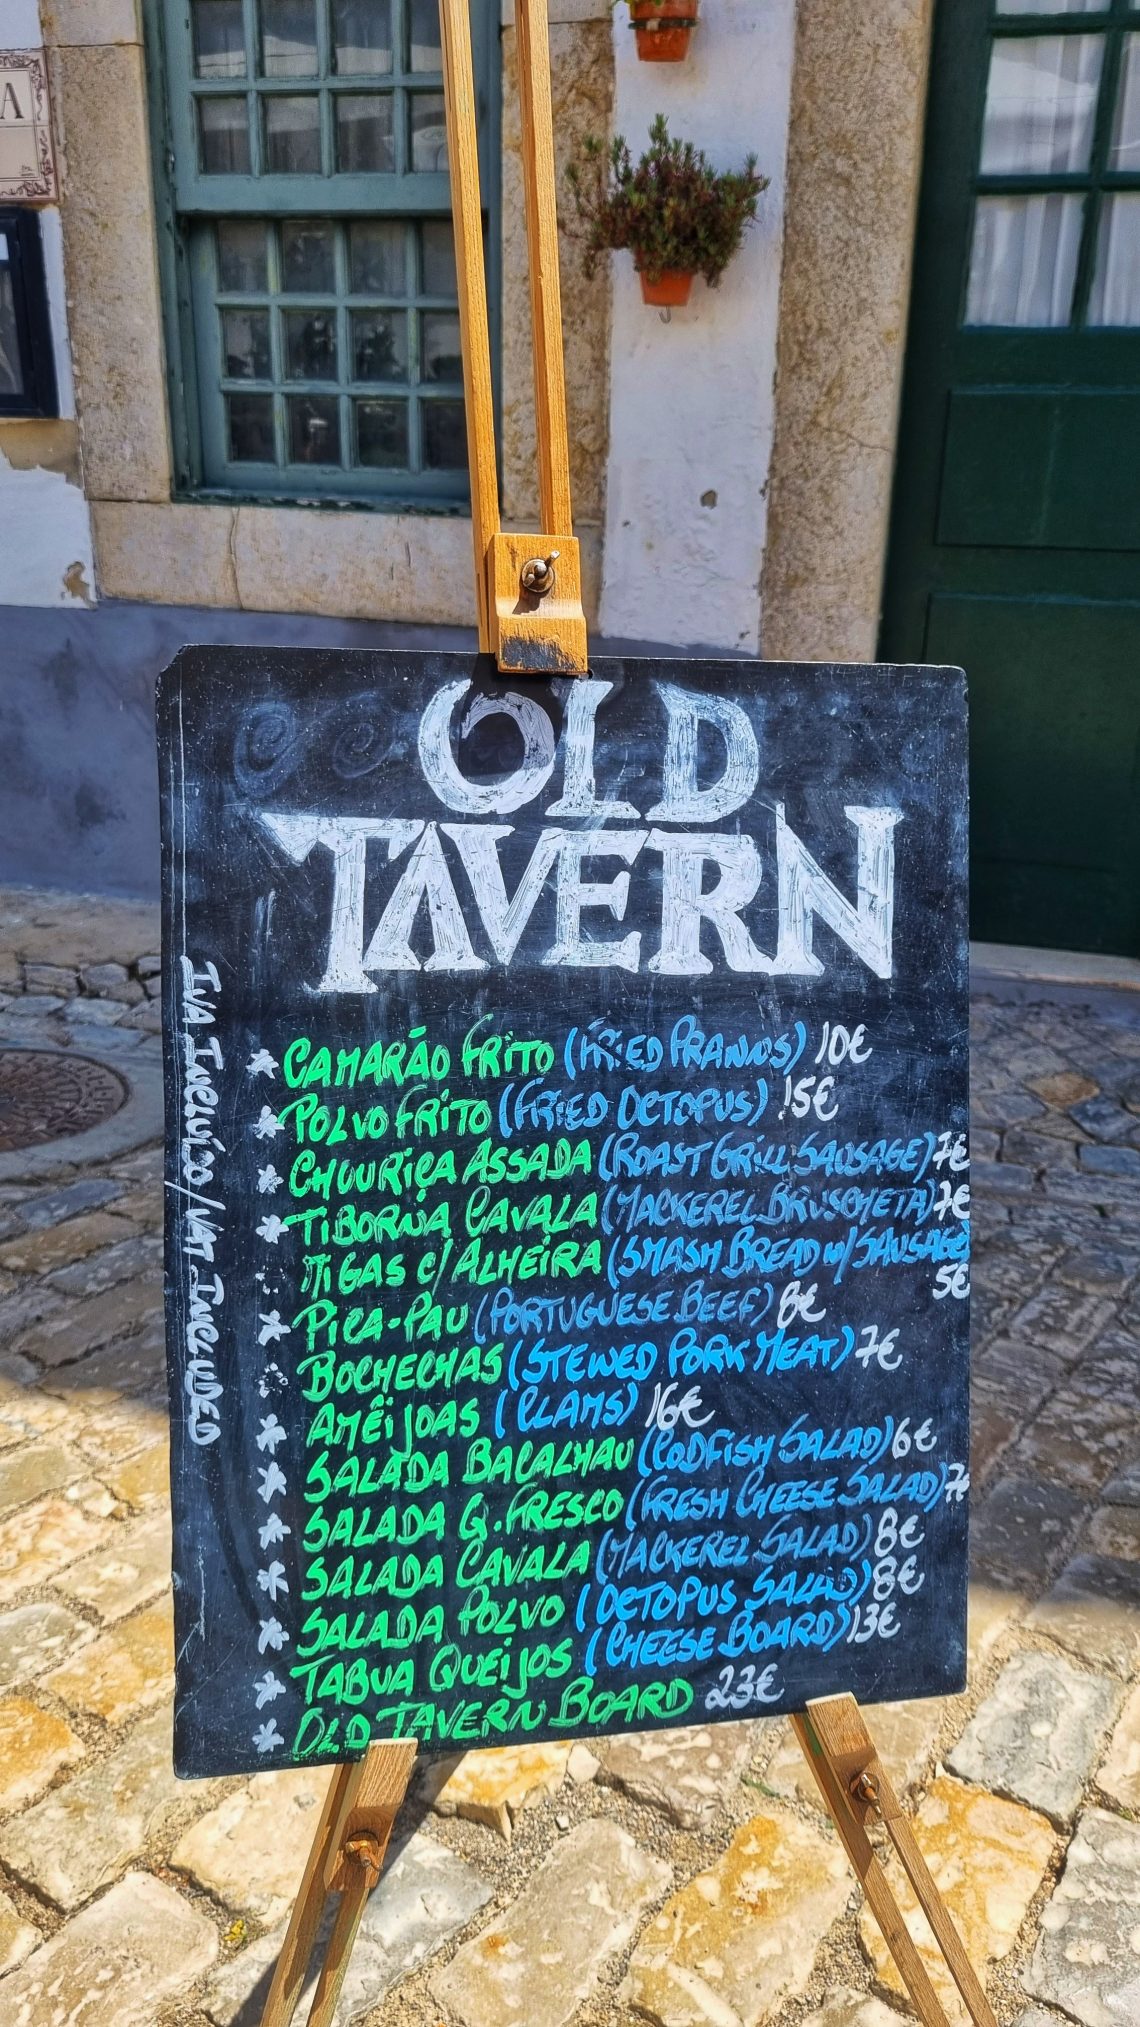 A
OLD
TAVERN
* CAMARÃO FRITO (FRIED PRAWNS) 10€
* POLVO FRITO (FRIED OCTOPUS) 15€
* CHOURIÇA ASSADA (ROAST GRILL SAUSAGE) 7€
* TIBORNA CAVALA (MACKEREL BRUSCHETA) 7€
MIGAS C/ ALHEIRA (SMASH BREAD W/ SAUSAGE)
5€
* PICA-PAU (PORTUGUESE BEEF) 8€
BOCHECHAS (STEWED PORK MEAT) 7€
* AMÊIJOAS (CLAMS) 16€
* SALADA BACALHAU (CODFISH SALAD) 6€
* SALADA Q. FRESCO (FRESH CHEESE SALAD) 7€
* SALADA CAVALA (MACKEREL SALAD) 8€
* SALADA POLVO (OCTOPUS SALAD) 8€
* TABUA QUEIJOS (CHEESE BOARD) 13€
* OLD TAVERN BOARD 23€
IVA INCLUÍDO / VAT INCLUDED